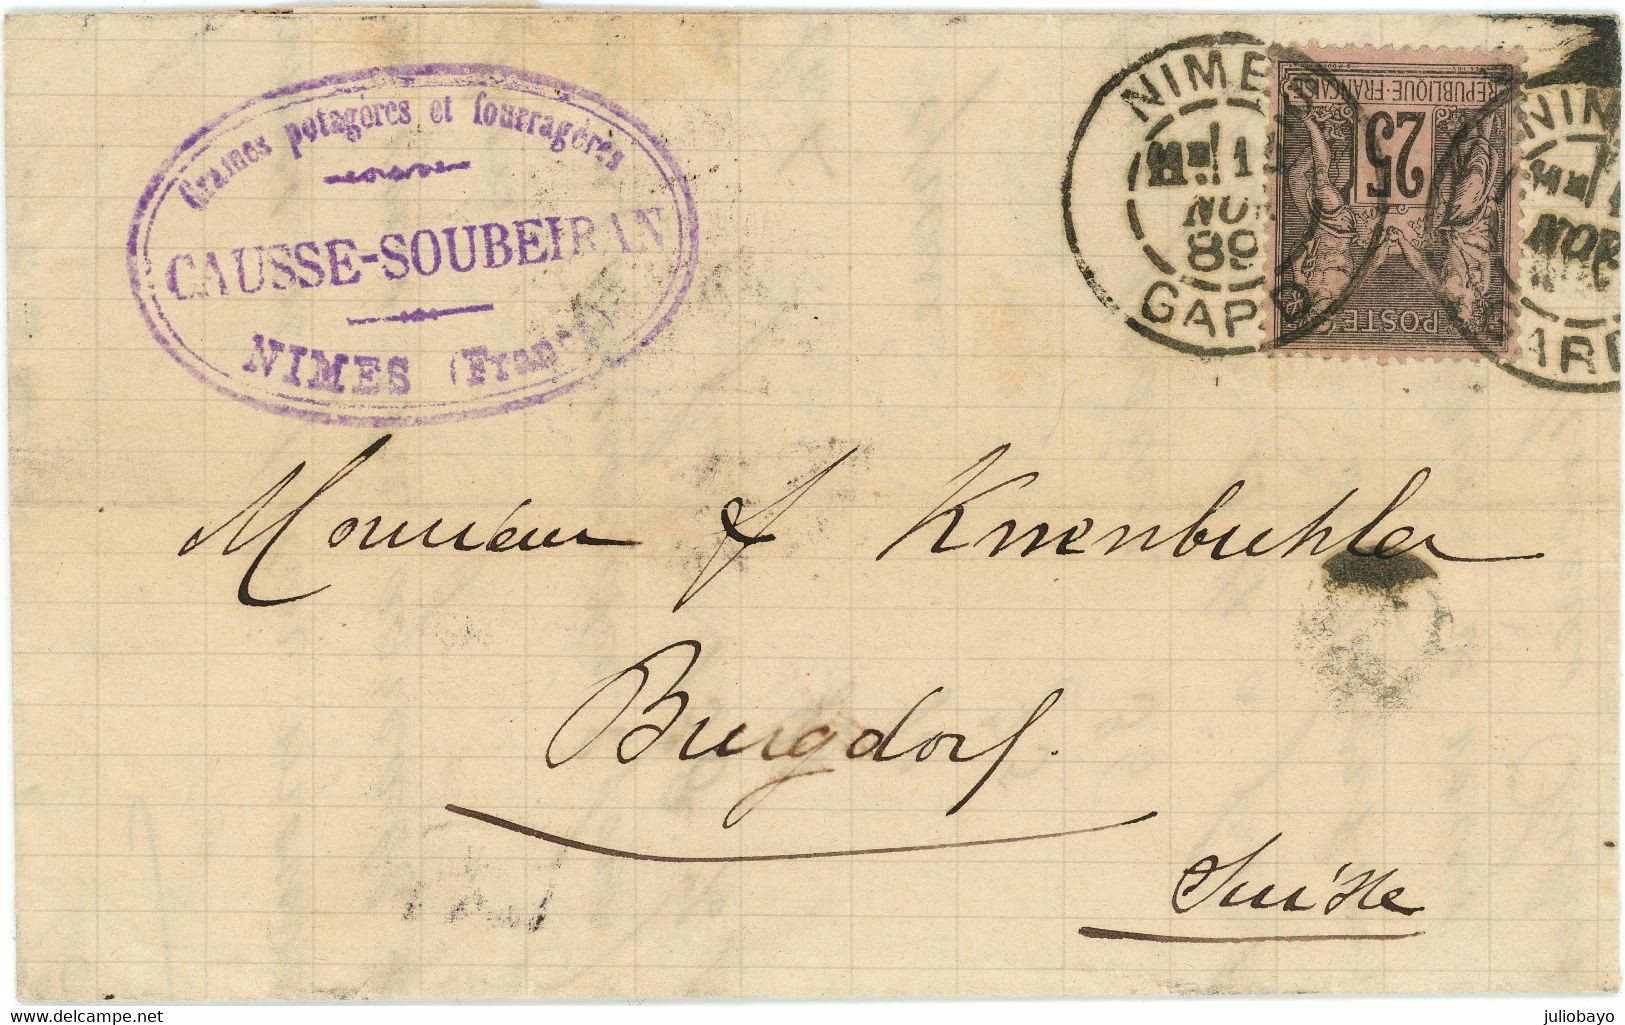 Graines potagères et fourragères
CAUSSE-SOUBEIRAN
NIMES (France)
NIMES
1
NOV
89
GARD
REPUBLIQUE·FRANÇAISE
25
POSTE
NIM
NOV
GARD
Monsieur
Burgdorf.
Suisse
delcampe.net
juliobayo